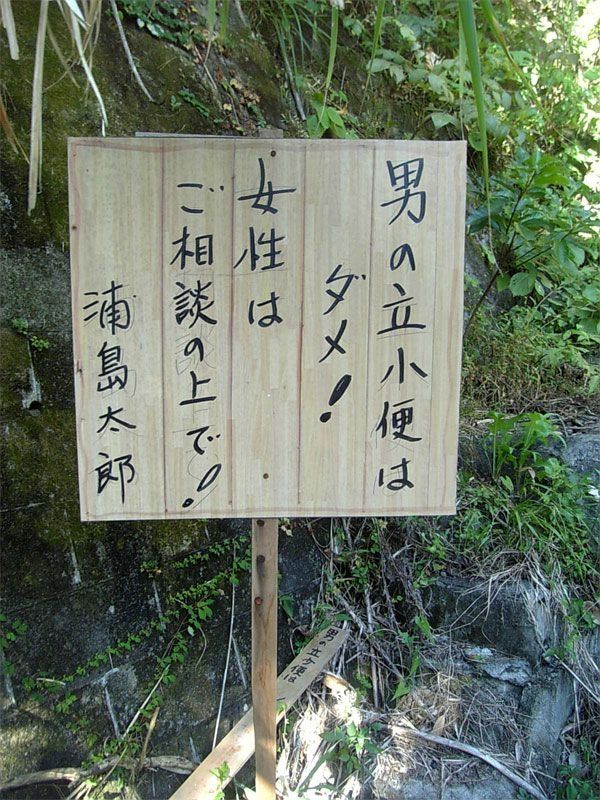 男の立小便は
ダメ!
女性は
ご相談の上で!
浦島太郎
男の立ケ便は